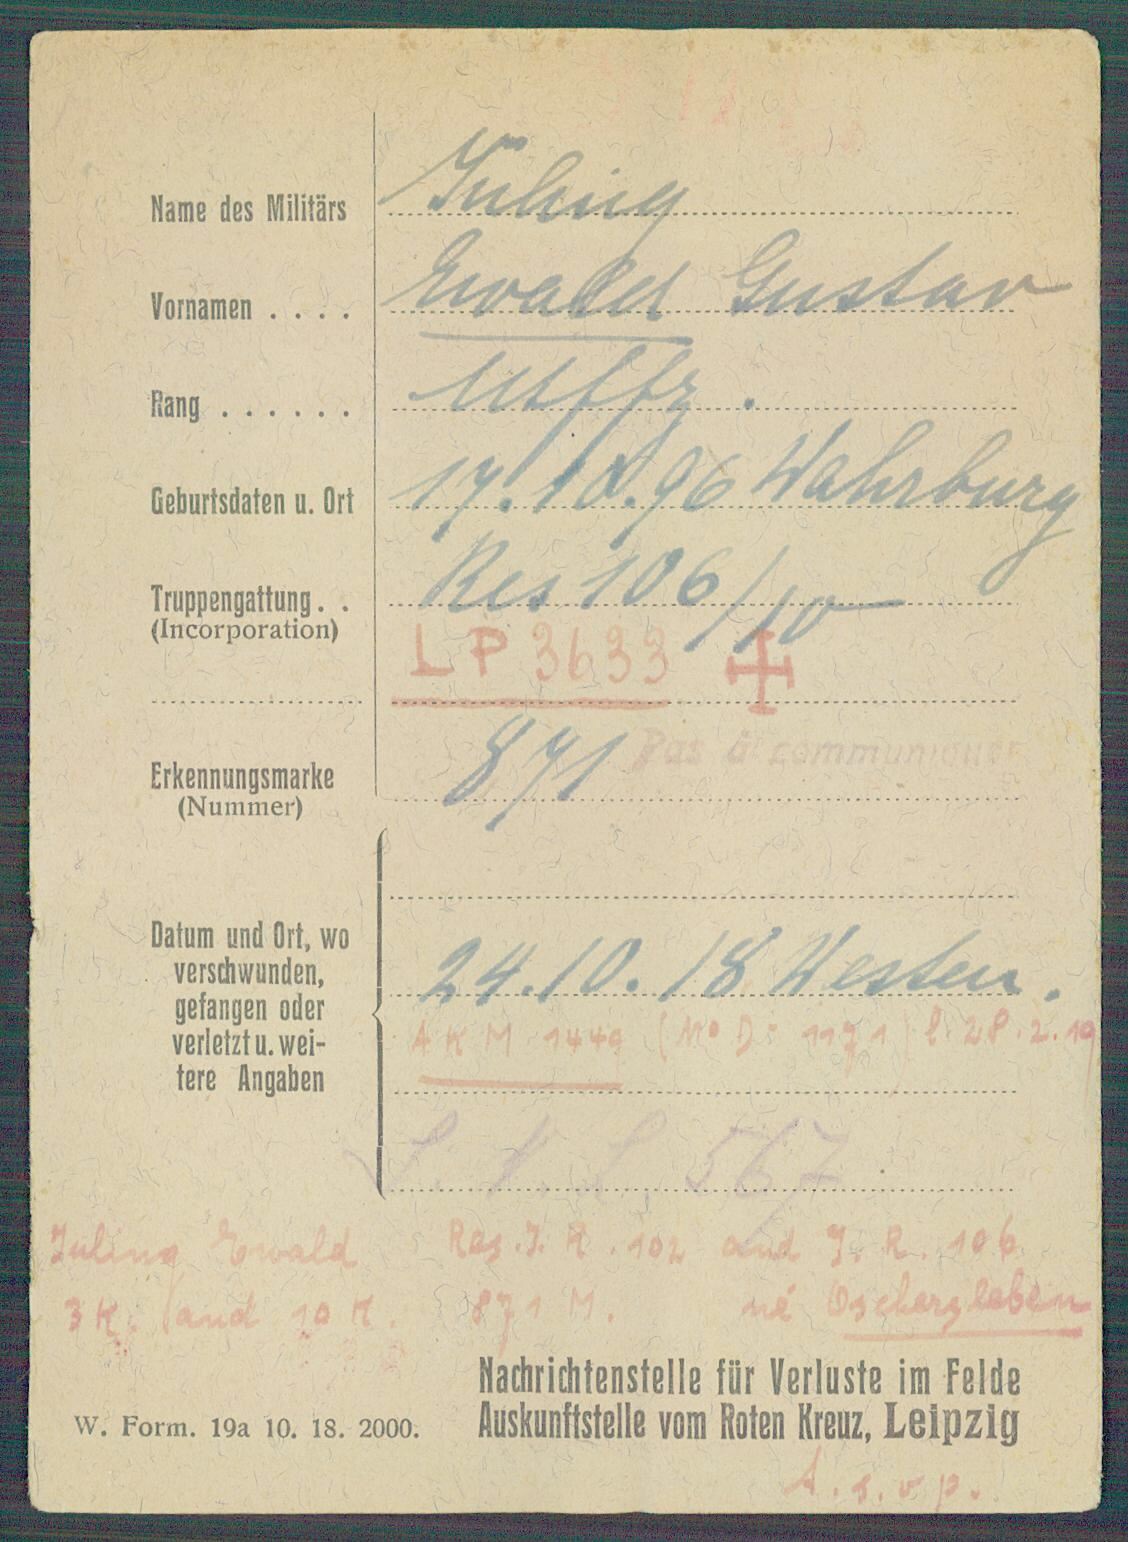 Name des Militärs Juling
Vornamen . . . . Ewald Gustav
Rang . . . . . . Utffz.
Geburtsdaten u. Ort 17.10.96 Wahrburg
Truppengattung . . Res 106/10
(Incorporation)
LP 3633
Erkennungsmarke 871 Pas à communiquer
(Nummer)
Datum und Ort, wo
verschwunden,
gefangen oder
verletzt u. wei-
tere Angaben
24.10.18 Westen.
AKM 1449 (Mo D: 1171) l. 28.2.19
567
Juling Ewald Res. J. R. 102 and J. R. 106
3 K. and 10 K. 871 M. né Oschersleben
Nachrichtenstelle für Verluste im Felde
W. Form. 19a 10. 18. 2000. Auskunftstelle vom Roten Kreuz, Leipzig